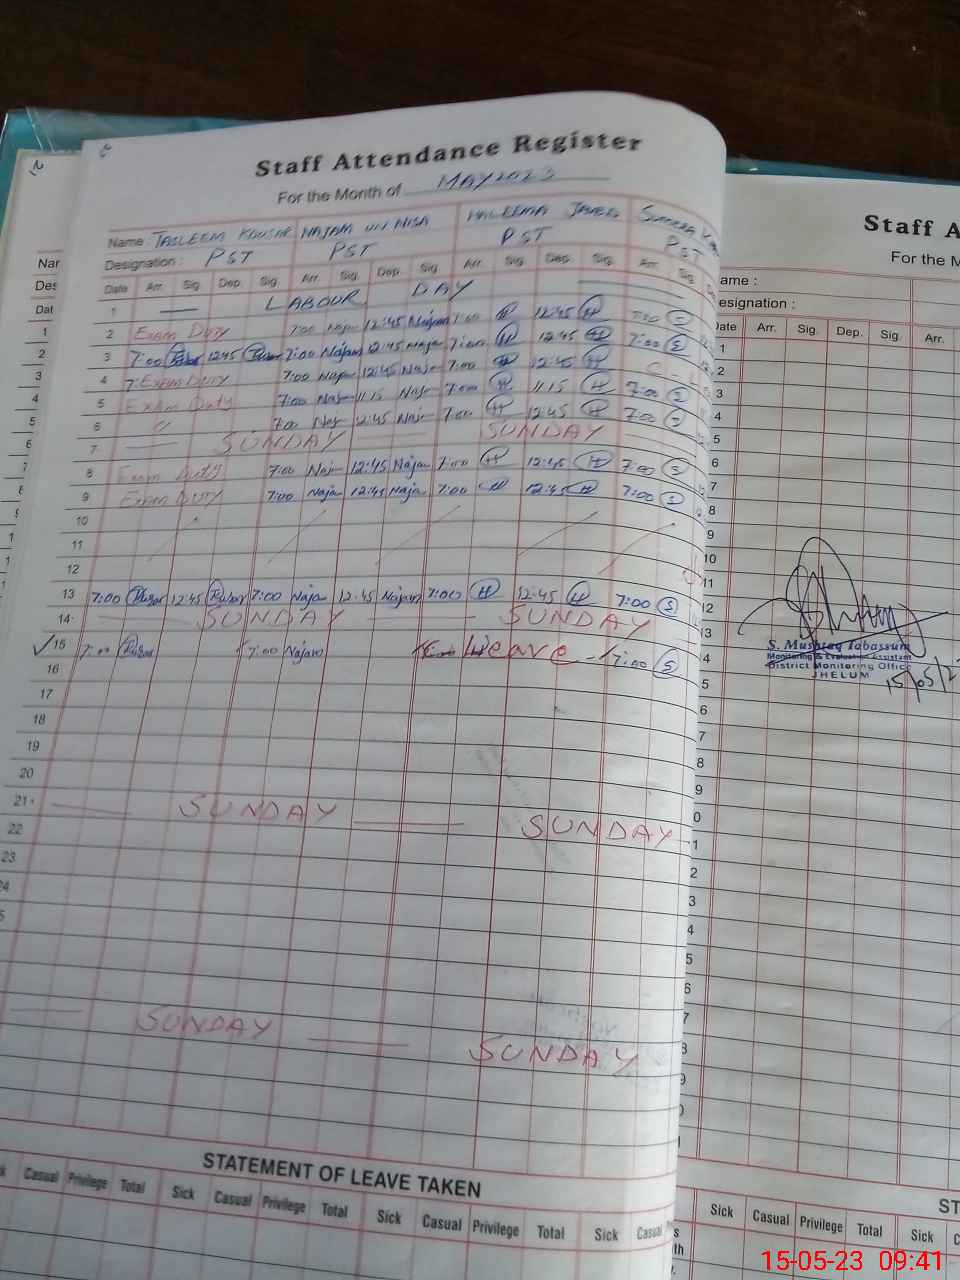 Staff Attendance Register
For the Month of MAY 2023
Name : TASLEEM KOUSAR NAJAM UN NISA HALEEMA
Designation : PST PST PST PST
Date Arr. Sig. Dep. Sig. Arr. Sig. Dep. Sig. Arr. Sig. Dep. Sig. Arr. Sig.
1 LABOUR DAY
2 Exam Duty 7:00 Naja 12:45 Najam 7:00 H 12:45 H 7:00 S
3 7:00 12:45 7:00 Najam 12:45 Naja 7:00 H 12:45 H 7:00 S
4 Exam Duty 7:00 Naja 12:45 Naja 7:00 H 12:45 H
5 Exam Duty 7:00 Naja 11.15 Naja 7:00 H 11.15 H 7:00 S
6 " 7:00 Naj 12:45 Naj 7:00 H 12:45 H 7:00 S
7 SUNDAY SUNDAY
8 Exam Duty 7:00 Naj 12:45 Naja 7:00 H 12:45 H 7:00 S
9 Exam Duty 7:00 Naja 12:45 Naja 7:00 H 12:45 H 7:00 S
10
11
12
13 7:00 12:45 7:00 Naja 12:45 Najam 7:00 H 12:45 H 7:00 S
14 SUNDAY SUNDAY
15 7:00 7:00 Najam Leave 7:00 S
16
17
18
19
20
21 SUNDAY SUNDAY
22
23
24
SUNDAY SUNDAY
STATEMENT OF LEAVE TAKEN
Casual Privilege Total Sick Casual Privilege Total Sick Casual Privilege Total Sick Casual
Staff A
For the M
ame :
esignation :
Date Arr. Sig. Dep. Sig. Arr.
1
2
3
4
5
6
7
8
9
10
11
12
S. Mushtaq Tabassum
Monitoring & Evaluation Assistant
District Monitoring Office
JHELUM
15/05/2
ST
Sick Casual Privilege Total Sick
15-05-23 09:41